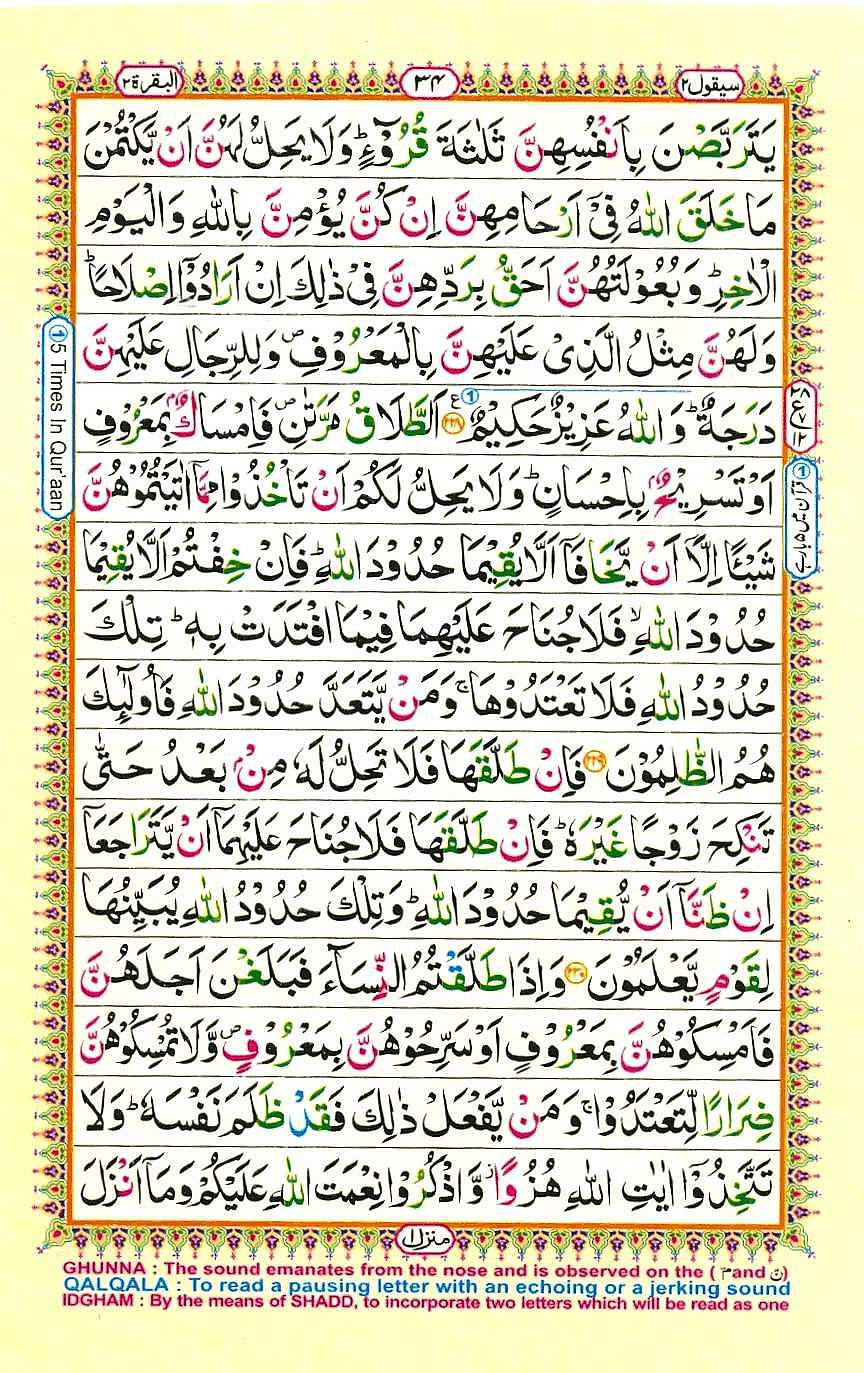 سیقول ۲
۳۴
البقرة ۲
یَتَرَبَّصْنَ بِاَنْفُسِهِنَّ ثَلٰثَةَ قُرُوْٓءٍ ؕ وَلَا یَحِلُّ لَهُنَّ اَنْ یَّكْتُمْنَ
مَا خَلَقَ اللّٰهُ فِیْۤ اَرْحَامِهِنَّ اِنْ كُنَّ یُؤْمِنَّ بِاللّٰهِ وَالْیَوْمِ
الْاٰخِرِ ؕ وَبُعُوْلَتُهُنَّ اَحَقُّ بِرَدِّهِنَّ فِیْ ذٰلِكَ اِنْ اَرَادُوْۤا اِصْلَاحًا ؕ
وَلَهُنَّ مِثْلُ الَّذِیْ عَلَیْهِنَّ بِالْمَعْرُوْفِ ۪ وَلِلرِّجَالِ عَلَیْهِنَّ
دَرَجَةٌ ؕ وَاللّٰهُ عَزِیْزٌ حَكِیْمٌ ۲۲۸ ع ① اَلطَّلَاقُ مَرَّتٰنِ ۪ فَاِمْسَاكٌۢ بِمَعْرُوْفٍ
اَوْ تَسْرِیْحٌۢ بِاِحْسَانٍ ؕ وَلَا یَحِلُّ لَكُمْ اَنْ تَاْخُذُوْا مِمَّاۤ اٰتَیْتُمُوْهُنَّ
شَیْـًٔا اِلَّاۤ اَنْ یَّخَافَاۤ اَلَّا یُقِیْمَا حُدُوْدَ اللّٰهِ ؕ فَاِنْ خِفْتُمْ اَلَّا یُقِیْمَا
حُدُوْدَ اللّٰهِ ۙ فَلَا جُنَاحَ عَلَیْهِمَا فِیْمَا افْتَدَتْ بِهٖ ؕ تِلْكَ
حُدُوْدُ اللّٰهِ فَلَا تَعْتَدُوْهَا ۚ وَمَنْ یَّتَعَدَّ حُدُوْدَ اللّٰهِ فَاُولٰٓىِٕكَ
هُمُ الظّٰلِمُوْنَ ۲۲۹ فَاِنْ طَلَّقَهَا فَلَا تَحِلُّ لَهٗ مِنْۢ بَعْدُ حَتّٰی
تَنْكِحَ زَوْجًا غَیْرَهٗ ؕ فَاِنْ طَلَّقَهَا فَلَا جُنَاحَ عَلَیْهِمَاۤ اَنْ یَّتَرَاجَعَاۤ
اِنْ ظَنَّاۤ اَنْ یُّقِیْمَا حُدُوْدَ اللّٰهِ ؕ وَتِلْكَ حُدُوْدُ اللّٰهِ یُبَیِّنُهَا
لِقَوْمٍ یَّعْلَمُوْنَ ۲۳۰ وَاِذَا طَلَّقْتُمُ النِّسَآءَ فَبَلَغْنَ اَجَلَهُنَّ
فَاَمْسِكُوْهُنَّ بِمَعْرُوْفٍ اَوْ سَرِّحُوْهُنَّ بِمَعْرُوْفٍ ۪ وَّلَا تُمْسِكُوْهُنَّ
ضِرَارًا لِّتَعْتَدُوْا ۚ وَمَنْ یَّفْعَلْ ذٰلِكَ فَقَدْ ظَلَمَ نَفْسَهٗ ؕ وَلَا
تَتَّخِذُوْۤا اٰیٰتِ اللّٰهِ هُزُوًا ؗ وَّاذْكُرُوْا نِعْمَتَ اللّٰهِ عَلَیْكُمْ وَمَاۤ اَنْزَلَ
① 5 Times In Qur'aan
① قرآن میں ۵ بار ہے
منزل ۱
GHUNNA : The sound emanates from the nose and is observed on the ( م and ن)
QALQALA : To read a pausing letter with an echoing or a jerking sound
IDGHAM : By the means of SHADD, to incorporate two letters which will be read as one